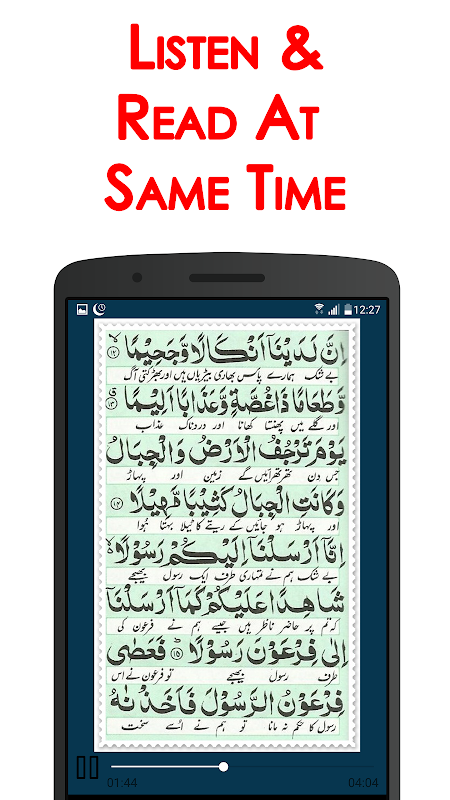 LISTEN &
READ AT
SAME TIME
12:27
اِنَّ لَدَيْنَاۤ اَنْكَالًا وَّجَحِيْمًا ۙ ۱۲
بے شک ہمارے پاس بھاری بیڑیاں ہیں اور بھڑکتی آگ
وَّطَعَامًا ذَا غُصَّةٍ وَّعَذَابًا اَلِيْمًا ۱۳
اور گلے میں پھنستا کھانا اور دردناک عذاب
يَوْمَ تَرْجُفُ الْاَرْضُ وَالْجِبَالُ
جس دن تھرتھرائیں گے زمین اور پہاڑ
وَكَانَتِ الْجِبَالُ كَثِيْبًا مَّهِيْلًا ۱۴
اور پہاڑ ہو جائیں گے ریتے کا ٹیلا بہتا ہوا
اِنَّاۤ اَرْسَلْنَاۤ اِلَيْكُمْ رَسُوْلًا ۙ
بے شک ہم نے تمہاری طرف ایک رسول بھیجے
شَاهِدًا عَلَيْكُمْ كَمَاۤ اَرْسَلْنَاۤ
کہ تم پر حاضر ناظر ہیں جیسے ہم نے فرعون کی
اِلٰى فِرْعَوْنَ رَسُوْلًا ؕ ۱۵ فَعَصٰى
طرف رسول بھیجے تو فرعون نے اس
فِرْعَوْنُ الرَّسُوْلَ فَاَخَذْنٰهُ
رسول کا حکم نہ مانا تو ہم نے اُسے سخت
01:44 04:04